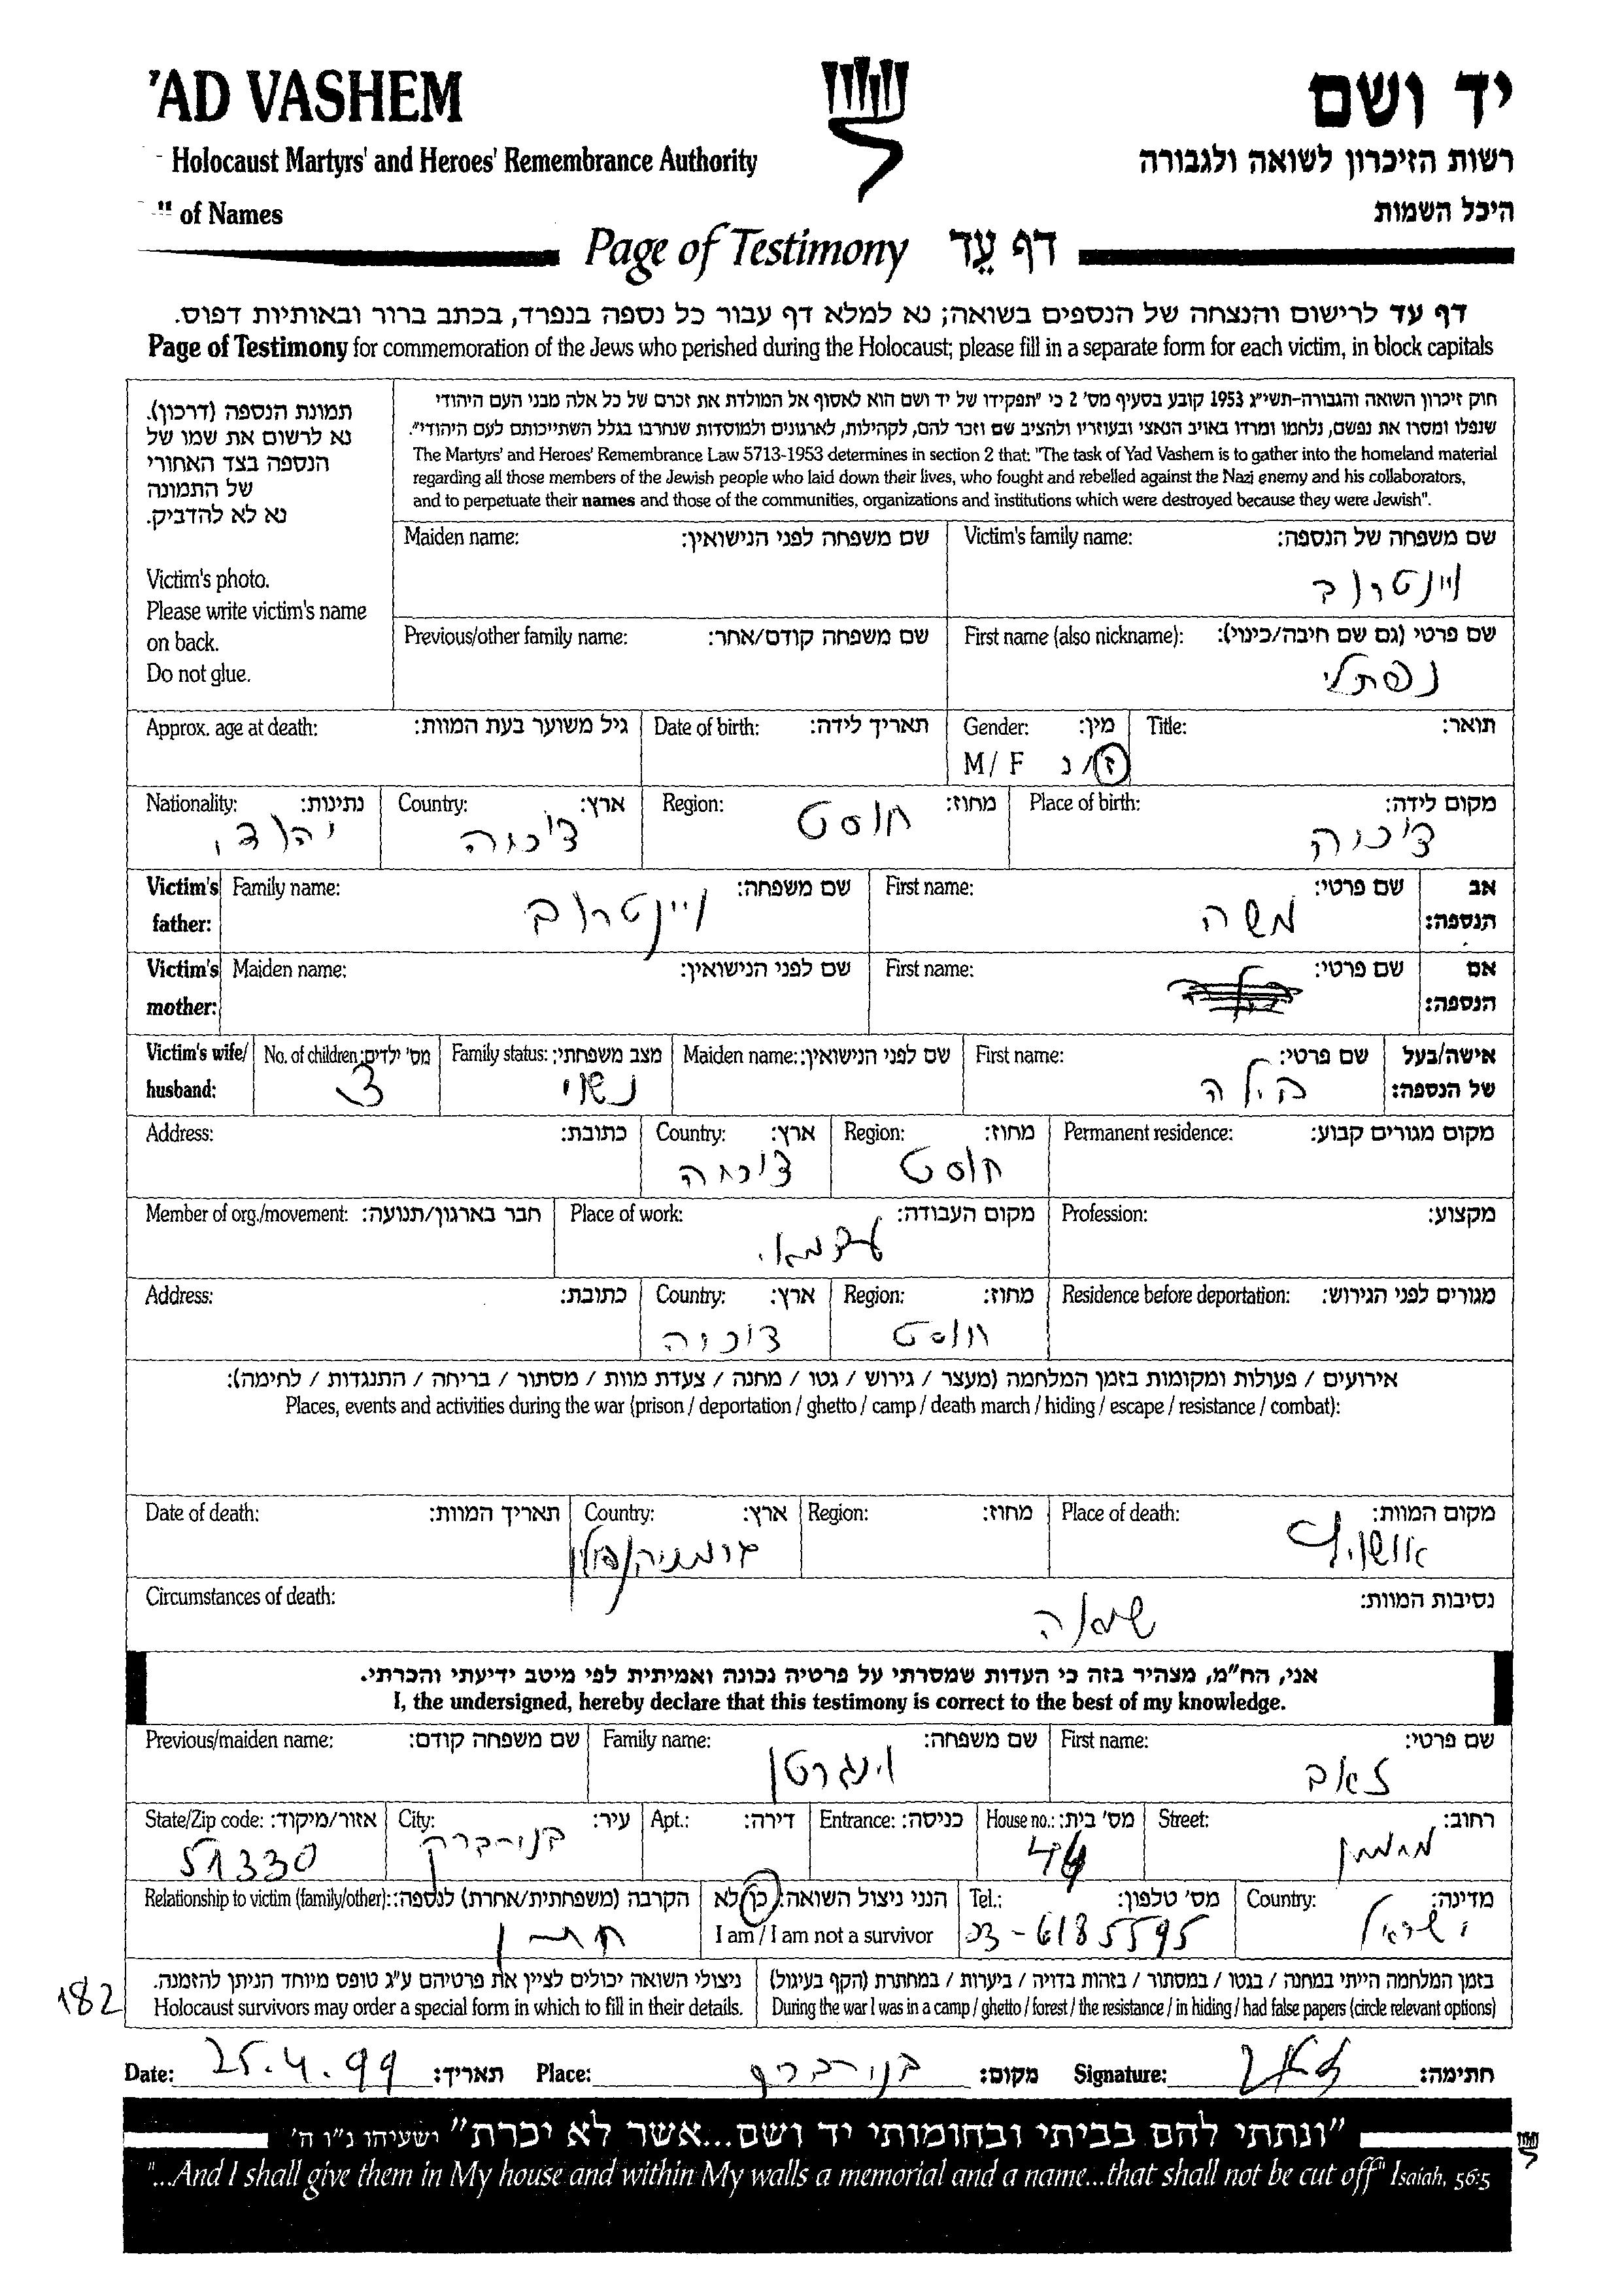 'AD VASHEM
יד ושם
Holocaust Martyrs' and Heroes' Remembrance Authority
רשות הזיכרון לשואה ולגבורה
of Names
היכל השמות
Page of Testimony דף עֵד
דף עד לרישום והנצחה של הנספים בשואה; נא למלא דף עבור כל נספה בנפרד, בכתב ברור ובאותיות דפוס.
Page of Testimony for commemoration of the Jews who perished during the Holocaust; please fill in a separate form for each victim, in block capitals
תמונת הנספה (דרכון).
נא לרשום את שמו של
הנספה בצד האחורי
של התמונה
נא לא להדביק.
Victim's photo.
Please write victim's name
on back.
Do not glue.
חוק זיכרון השואה והגבורה-תשי"ג 1953 קובע בסעיף מס' 2 כי "תפקידו של יד ושם הוא לאסוף אל המולדת את זכרם של כל אלה מבני העם היהודי
שנפלו ומסרו את נפשם, נלחמו ומרדו באויב הנאצי ובעוזריו ולהציב שם וזכר להם, לקהילות, לארגונים ולמוסדות שנחרבו בגלל השתייכותם לעם היהודי".
The Martyrs' and Heroes' Remembrance Law 5713-1953 determines in section 2 that: "The task of Yad Vashem is to gather into the homeland material
regarding all those members of the Jewish people who laid down their lives, who fought and rebelled against the Nazi enemy and his collaborators,
and to perpetuate their names and those of the communities, organizations and institutions which were destroyed because they were Jewish".
Maiden name: שם משפחה לפני הנישואין:
Victim's family name: שם משפחה של הנספה:
ויינטרוב
Previous/other family name: שם משפחה קודם/אחר:
First name (also nickname): שם פרטי (גם שם חיבה/כינוי):
נפתלי
Approx. age at death: גיל משוער בעת המוות:
Date of birth: תאריך לידה:
Gender: מין:
M/ F ז/נ
Title: תואר:
Nationality: נתינות:
יהודי
Country: ארץ:
צ'כיה
Region: מחוז:
חוסט
Place of birth: מקום לידה:
צ'כיה
Victim's father: Family name: שם משפחה:
ויינטרוב
First name: שם פרטי: אב הנספה:
משה
Victim's mother: Maiden name: שם לפני הנישואין:
First name: שם פרטי: אם הנספה:
Victim's wife/ husband: No. of children: מס' ילדים:
3
Family status: מצב משפחתי:
נשוי
Maiden name: שם לפני הנישואין:
First name: שם פרטי: אישה/בעל של הנספה:
בילה
Address: כתובת:
Country: ארץ:
צ'כיה
Region: מחוז:
חוסט
Permanent residence: מקום מגורים קבוע:
Member of org./movement: חבר בארגון/תנועה:
Place of work: מקום העבודה:
עצמאי
Profession: מקצוע:
Address: כתובת:
Country: ארץ:
צ'כיה
Region: מחוז:
חוסט
Residence before deportation: מגורים לפני הגירוש:
אירועים / פעולות ומקומות בזמן המלחמה (מעצר / גירוש / גטו / מחנה / צעדת מוות / מסתור / בריחה / התנגדות / לחימה):
Places, events and activities during the war (prison / deportation / ghetto / camp / death march / hiding / escape / resistance / combat):
Date of death: תאריך המוות:
Country: ארץ:
Region: מחוז:
Place of death: מקום המוות:
אושויץ
Circumstances of death: נסיבות המוות:
אני, הח"מ, מצהיר בזה כי העדות שמסרתי על פרטיה נכונה ואמיתית לפי מיטב ידיעתי והכרתי.
I, the undersigned, hereby declare that this testimony is correct to the best of my knowledge.
Previous/maiden name: שם משפחה קודם:
Family name: שם משפחה:
וינגרטן
First name: שם פרטי:
זאב
State/Zip code: אזור/מיקוד:
51330
City: עיר:
בני ברק
Apt.: דירה:
Entrance: כניסה:
House no.: מס' בית:
Street: רחוב:
Relationship to victim (family/other): הקרבה (משפחתית/אחרת) לנספה:
חתן
הנני ניצול השואה: כן/לא
I am / I am not a survivor
Tel.: מס' טלפון:
03-6185595
Country: מדינה:
ישראל
182
ניצולי השואה יכולים לציין את פרטיהם ע"ג טופס מיוחד הניתן להזמנה.
Holocaust survivors may order a special form in which to fill in their details.
בזמן המלחמה הייתי במחנה / בגטו / במסתור / בזהות בדויה / ביערות / במחתרת (הקף בעיגול)
During the war I was in a camp / ghetto / forest / the resistance / in hiding / had false papers (circle relevant options)
Date: 25.4.99 תאריך: Place: בני ברק מקום: Signature: חתימה:
"ונתתי להם בביתי ובחומותי יד ושם...אשר לא יכרת" ישעיהו נ"ו ה'
"...And I shall give them in My house and within My walls a memorial and a name...that shall not be cut off" Isaiah, 56:5